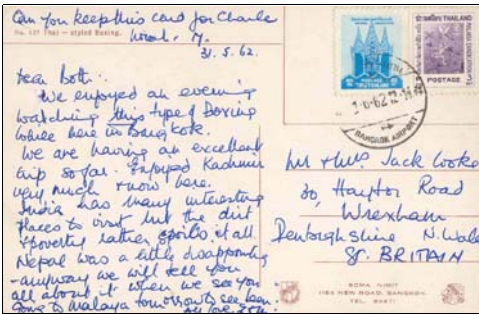 Can you keep this card for Charle
No. 127 Thai – styled Boxing.
31.5.62.
Dear Both :-
We enjoyed an evening
watching this type of Boxing
while here in Bangkok.
We are having an excellent
trip so far. Enjoyed Kashmir
very much & now here.
India has many interesting
places to visit but the dirt
& poverty rather spoils it all
Nepal was a little disappointing
- anyway we will tell you
all about it when we see you
Going to Malaya tomorrow to see
All love
THAILAND
POSTAGE
1-6-62
BANGKOK AIRPORT
Mr & Mrs. Jack Cooke
30, Haytor Road
Wrexham
Denbighshire N. Wales
GT. BRITAIN
SOMA NIMIT
1184 NEW ROAD, BANGKOK.